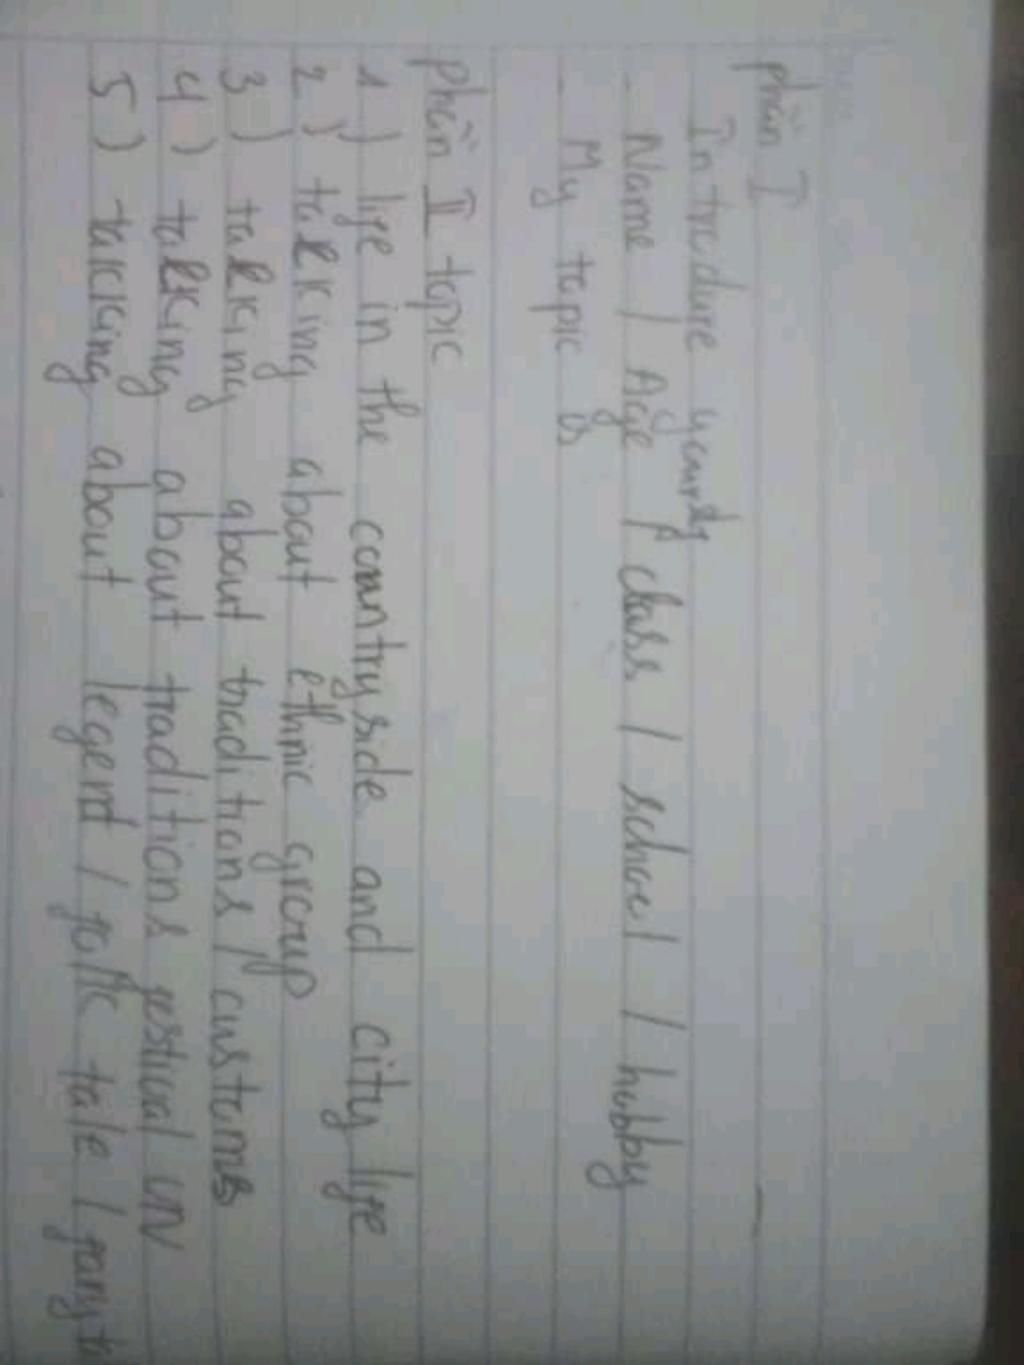 phần I
Introduce yourself
- Name / Age / class / school / hobby
- My topic is
phần II topic
1) life in the countryside and city life
2) talking about ethnic group
3) talking about traditions / customs
4) talking about traditions festival in
5) talking about legend / folk tale /